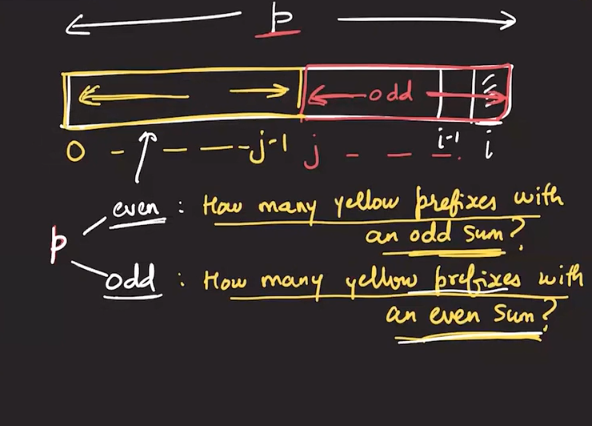 p
odd
0 - - - - - j-1 j - - - i-1 i
p
even : How many yellow prefixes with
an odd sum?
odd : How many yellow prefixes with
an even sum?